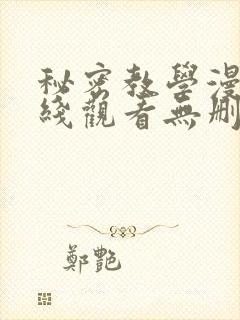 秘密教學漫
綫觀看無刪
鄭艷